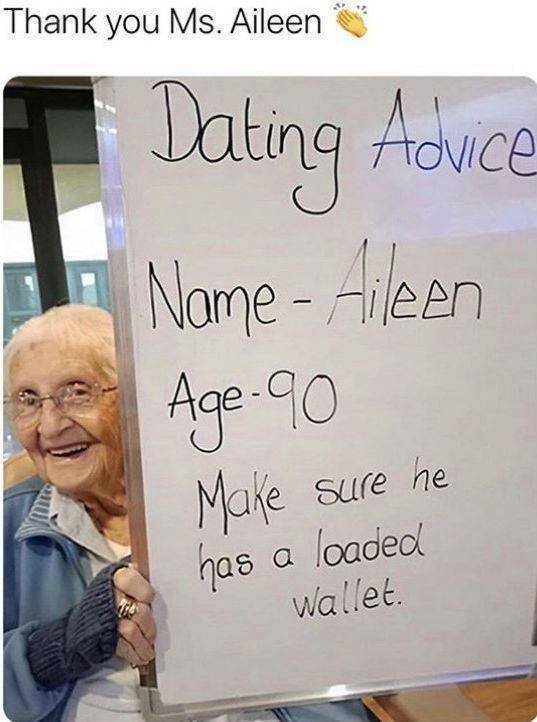 Thank you Ms. Aileen 👏
Dating Advice
Name - Aileen
Age-90
Make sure he
has a loaded
wallet.